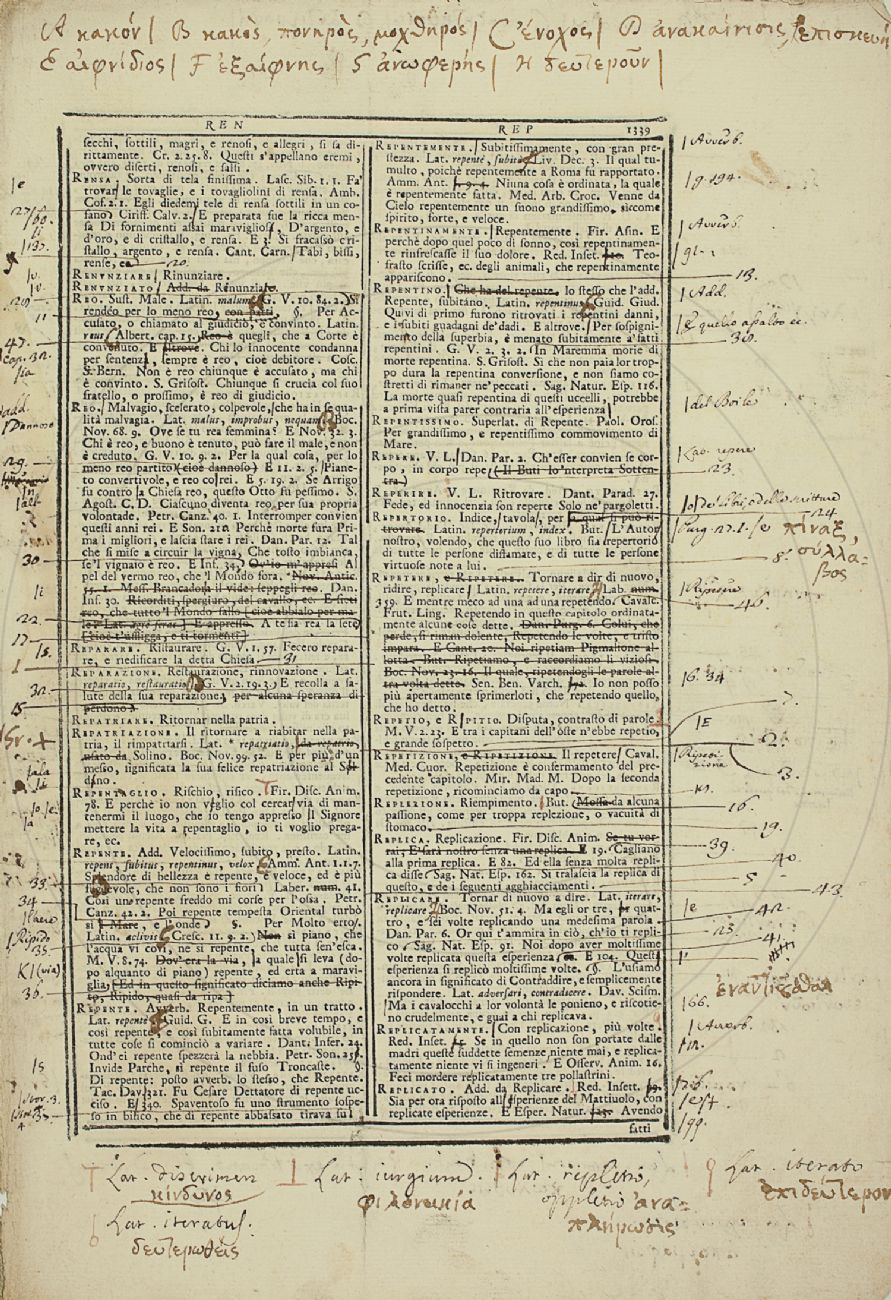 A κακόν | B κακὸς, πονηρὸς, μοχθηρός | C ένοχος | D ἀνακαίνισις, ἐπισκευή
E αἰφνίδιος | F ἐξαίφνης | G ἀνωφερής | H δευτεροῦν |
REN
REP
1339
secchi, sottili, magri, e renosi, e allegri, si fa di-
rittamente. Cr. 2. 25. 8. Questi s'appellano eremi,
ovvero diserti, renosi, e salsi.
RENSA. Sorta di tela finissima. Lasc. Sib. 1. 1. Fa'
trovar le tovaglie, e i tovagliolini di rensa. Amb.
Cof. 2. 1. Egli diedemi tele di rensa sottili in un co-
fano. Ciriff. Calv. 2. E preparata fue la ricca men-
sa Di fornimenti assai maravigliosi, D'argento, e
d'oro, e di cristallo, e rensa. E 3. Si fracassò cri-
stallo, argento, e rensa. Cant. Carn. Tabì, bissi,
rense, ec.
RENUNZIARE. Rinunziare.
RENUNZIATO. Add. da Renunziare.
REO. Sust. Male. Latin. malum. G. V. 10. 84. 2. Si
rendèo per lo meno reo, con patti. §. Per Ac-
cusato, o chiamato al giudicio, e convinto. Latin.
reus. Albert. cap. 15. Reo è quegli, che a Corte è
convenuto. E altrove. Chi lo innocente condanna
per sentenza, sempre è reo, cioè debitore. Cosc.
S. Bern. Non è reo chiunque è accusato, ma chi
è convinto. S. Grisost. Chiunque si crucia col suo
fratello, o prossimo, è reo di giudicio.
REO. Malvagio, scelerato, colpevole, che ha in se qua-
lità malvagia. Lat. malus, improbus, nequam. Boc.
Nov. 68. 9. Ove se tu rea femmina? E Nov. 32. 3.
Chi è reo, e buono è tenuto, può fare il male, e non
è creduto. G. V. 10. 9. 2. Per la qual cosa, per lo
meno reo partito (cioè dannoso) E 11. 2. 5. Piane-
to convertivole, e reo co' rei. E 5. 19. 2. Se Arrigo
fu contro la Chiesa reo, questo Otto fu pessimo. S.
Agost. C. D. Ciascuno diventa reo per sua propria
volontade. Petr. Canz. 40. 1. Interromper convien
questi anni rei. E Son. 212. Perchè morte fura Pri-
ma i migliori, e lascia stare i rei. Dan. Par. 12. Tal
che si mise a circuir la vigna, Che tosto imbianca,
se 'l vignaio è reo. E Inf. 34. Ov'io m'appresi Al
pel del vermo reo, che 'l Mondo fora. Nov. Antic.
55. 1. Mess. Brancadoria il vide: seppegli reo. Dan.
Inf. 30. Ricorditi, spergiuro, del cavallo, ec. E sieti
reo, che tutto 'l Mondo sallo (cioè abbialo per ma-
le: Lat. aegre feras) E appresso. A te sia rea la sete
(cioè t'affligga, e ti tormenti)
REPARARE. Ristaurare. G. V. 1. 57. Fecero repara-
re, e riedificare la detta Chiesa.
REPARAZIONE. Restaurazione, rinnovazione. Lat.
reparatio, restauratio. G. V. 2. 19. 3. E recolla a sa-
lute della sua reparazione, per alcuna speranza di
perdono.
REPATRIARE. Ritornar nella patria.
REPATRIAZIONE. Il ritornare a riabitar nella pa-
tria, il rimpatriarsi. Lat. * repatriatio, da repatrio,
usato da Solino. Boc. Nov. 99. 52. E per più d'un
messo, significata la sua felice repatriazione al Sol-
dano.
REPENTAGLIO. Rischio, risico. Fir. Disc. Anim.
78. E perchè io non voglio col cercar via di man-
tenermi il luogo, che io tengo appresso il Signore
mettere la vita a repentaglio, io ti voglio prega-
re, ec.
REPENTE. Add. Velocissimo, subito, presto. Latin.
repens, subitus, repentinus, velox. Amm. Ant. 1. 1. 7.
Splendore di bellezza è repente, è veloce, ed è più
fuggevole, che non sono i fiori. Laber. num. 41.
Così uno repente freddo mi corse per l'ossa. Petr.
Canz. 42. 2. Poi repente tempesta Oriental turbò
sì l'Mare, e l'onde. §. Per Molto erto.
Latin. acclivis. Cresc. 11. 9. 2. Non sì piano, che
l'acqua vi covi, ne sì repente, che tutta sen'esca.
M. V. 8. 74. Dov'era la via, la quale si leva (do-
po alquanto di piano) repente, ed erta a maravi-
glia (Ed in questo significato diciamo anche Ripi-
to, Ripido, quasi da ripa)
REPENTE. Avverb. Repentemente, in un tratto.
Lat. repente. Guid. G. E in così breve tempo, e
così repente, e così subitamente fatta volubile, in
tutte cose si cominciò a variare. Dant. Infer. 24.
Ond'ei repente spezzerà la nebbia. Petr. Son. 258.
Invide Parche, sì repente il fuso Troncaste. §.
Di repente: posto avverb. lo stesso, che Repente.
Tac. Dav. 321. Fu Cesare Dettatore di repente uc-
ciso. E 340. Spaventoso fu uno strumento sospe-
so in bilico, che di repente abbassato tirava su i
REPENTEMENTE. Subitissimamente, con gran pre-
stezza. Lat. repente, subito. Liv. Dec. 3. Il qual tu-
multo, poichè repentemente a Roma fu rapportato.
Amm. Ant. 1. 9. 4. Niuna cosa è ordinata, la quale
è repentemente fatta. Med. Arb. Croc. Venne da
Cielo repentemente un suono grandissimo, siccome
spirito, forte, e veloce.
REPENTINAMENTE. Repentemente. Fir. Asin. E
perchè dopo quel poco di sonno, così repentinamen-
te rinfrescasse il suo dolore. Red. Inset. 10. Teo-
frasto scrisse, ec. degli animali, che repentinamente
appariscono.
REPENTINO. Che ha del repente, lo stesso che l'add.
Repente, subitano. Latin. repentinus. Guid. Giud.
Quivi di primo furono ritrovati i repentini danni,
e i subiti guadagni de'dadi. E altrove. Per sospigni-
mento della superbia, è menato subitamente a'fatti
repentini. G. V. 2. 3. 2. In Maremma morìe di
morte repentina. S. Grisost. Sì che non paia lor trop-
po dura la repentina conversione, e non siamo co-
stretti di rimaner ne'peccati. Sag. Natur. Esp. 116.
La morte quasi repentina di questi uccelli, potrebbe
a prima vista parer contraria all'esperienza.
REPENTISSIMO. Superlat. di Repente. Paol. Oros.
Per grandissimo, e repentissimo commovimento di
Mare.
REPERE. V. L. Dan. Par. 2. Ch'esser convien se cor-
po, in corpo repe (Il Buti lo'nterpreta Sotten-
tra)
REPERIRE. V. L. Ritrovare. Dant. Parad. 27.
Fede, ed innocenzia son reperte Solo ne' pargoletti.
REPERTORIO. Indice, tavola, per la qual si può ri-
trovare. Latin. repertorium, index. But. L'Autor
nostro, volendo, che questo suo libro sia repertorio
di tutte le persone disfamate, e di tutte le persone
virtuose note a lui.
REPETERE, e REPETERE. Tornare a dir di nuovo,
ridire, replicare. Latin. repetere, iterare. Lab. num.
359. E mentre meco ad una ad una repetendo. Cavalc.
Frut. Ling. Repetendo in questo capitolo ordinata-
mente alcune cose dette. Dan. Purg. 6. Colui, che
perde, si riman dolente, Repetendo le volte, e tristo
impara. E Cant. 20. Noi ripetiam Pigmalione al-
lotta. But. Ripetiamo, e raccordiamo li viziosi.
Boc. Nov. 23. 16. Il quale, ripetendogli le parole al-
tra volta dette. Sen. Ben. Varch. 7. 2. Io non posso
più apertamente sprimerloti, che repetendo quello,
che ho detto.
REPETIO, e RIPITIO. Disputa, contrasto di parole.
M. V. 2. 23. E tra i capitani dell'oste n'ebbe repetio,
e grande sospetto.
REPETIZIONE, e RIPETIZIONE. Il repetere. Caval.
Med. Cuor. Repetizione è confermamento del pre-
cedente capitolo. Mir. Mad. M. Dopo la seconda
repetizione, ricominciamo da capo.
REPLEZIONE. Riempimento. But. (Mossa da alcuna
passione, come per troppa replezione, o vacuità di
stomaco.
REPLICA. Replicazione. Fir. Disc. Anim. Se tu vor-
rai, E'sarà nostro senza una replica. E 19. Cagliano
alla prima replica. E 82. Ed ella senza molta repli-
ca disse. Sag. Nat. Esp. 162. Si tralascia la replica di
questo, e de i seguenti agghiacciamenti.
REPLICARE. Tornar di nuovo a dire. Lat. iterare,
replicare. Boc. Nov. 51. 4. Ma egli or tre, or quat-
tro, e sei volte replicando una medesima parola.
Dan. Par. 6. Or qui t'ammira in ciò, ch'io ti repli-
co. Sag. Nat. Esp. 91. Noi dopo aver moltissime
volte replicata questa esperienza, ec. E 104. Questa
esperienza si replicò moltissime volte. §. L'usiamo
ancora in significato di Contraddire, e semplicemente
rispondere. Lat. adversari, contradicere. Dav. Scism.
Ma i cavalocchi a lor volontà le ponieno, e riscotie-
no crudelmente, e guai a chi replicava.
REPLICATAMENTE. Con replicazione, più volte.
Red. Inset. 15. Se in quello non son portate dalle
madri queste suddette semenze, niente mai, e replica-
tamente niente vi si ingeneri. E Osserv. Anim. 16.
Feci mordere replicatamente tre pollastrini.
REPLICATO. Add. da Replicare. Red. Insett. 69.
Sia per ora risposto all'esperienze del Mattiuolo, con
replicate esperienze. E Esper. Natur. 123. Avendo
fatti
Avverb.
g. 194.
Avverb.
13.
Add.
E quello assalto ec.
38.
del Boile
23.
24.
πίναξ,
σύλλα-
βος
46.
16. 34
7.
2.
3.
16.
19.
39.
40
5
43.
42.
41.
166.
Avverb.
199.
27
11
47.
cap. 32.
add.
Dannoso
29.
30
22.
17.
31
32.
15.
33
34
Ripido
35
36.
Lat. discrimen
κίνδυνος
Lat. iurgium
φιλονεικία
Lat. repletio,
oppletio ἀνα-
πλήρωσις
Lat. iterato
ἐπιδεύτερον
Lat. iteratus.
δευτερωθείς